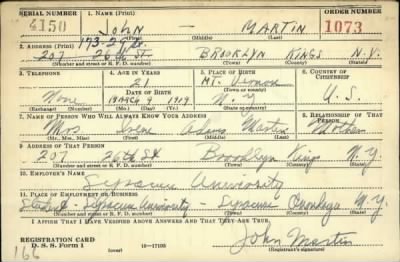 SERIAL NUMBER
1. NAME (Print)
ORDER NUMBER
4150
JOHN — MARTIN
1073
(First) (Middle) (Last)
2. ADDRESS (Print)
173-26 St.
207 26th St. BROOKLYN KINGS N.Y.
(Number and street or R. F. D. number) (Town) (County) (State)
3. TELEPHONE
4. AGE IN YEARS
5. PLACE OF BIRTH
6. COUNTRY OF CITIZENSHIP
21
Mt. Vernon
DATE OF BIRTH
(Town or county)
None
MARCH 9 1919
N.Y.
U.S.
(Exchange) (Number)
(Mo.) (Day) (Yr.)
(State or country)
7. NAME OF PERSON WHO WILL ALWAYS KNOW YOUR ADDRESS
8. RELATIONSHIP OF THAT PERSON
Mrs Irene Adams Martin Mother
(Mr., Mrs., Miss) (First) (Middle) (Last)
9. ADDRESS OF THAT PERSON
207 26th St Brooklyn Kings N.Y.
(Number and street or R. F. D. number) (Town) (County) (State)
10. EMPLOYER'S NAME
Syracuse University
11. PLACE OF EMPLOYMENT OR BUSINESS
Student - Syracuse University - Syracuse Onondaga N.Y.
(Number and street or R. F. D. number) (Town) (County) (State)
I AFFIRM THAT I HAVE VERIFIED ABOVE ANSWERS AND THAT THEY ARE TRUE.
REGISTRATION CARD
D. S. S. Form 1
(over)
16—17105
John Martin
(Registrant's signature)
166